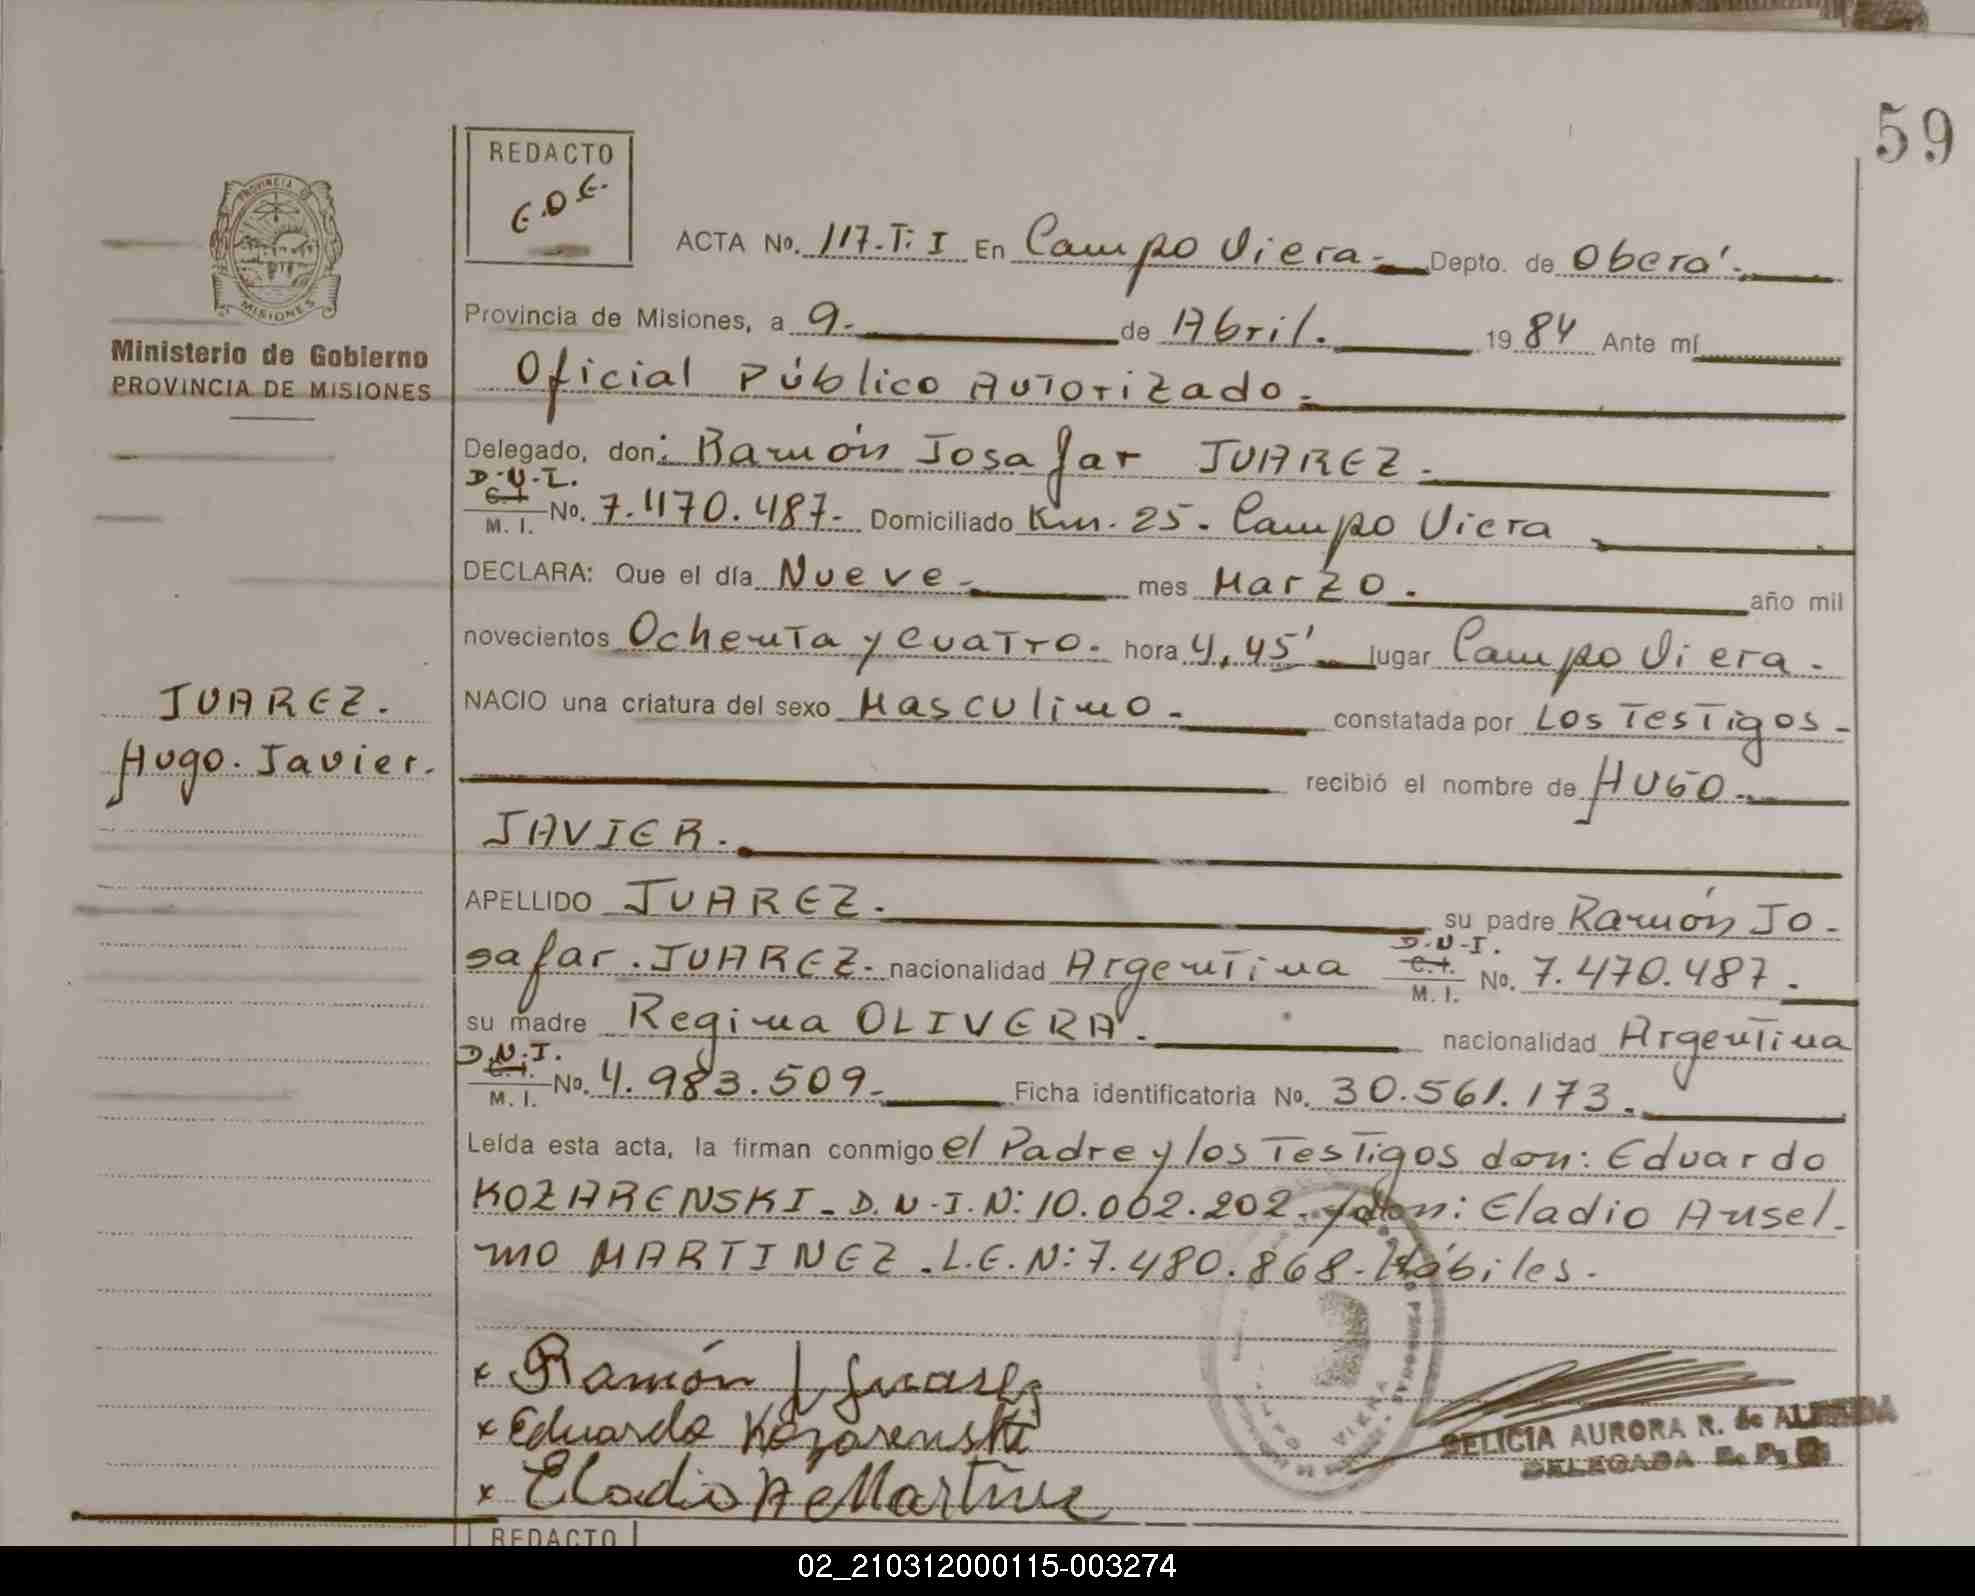 59
REDACTO
E.D.E.
PROVINCIA DE
MISIONES
Ministerio de Gobierno
PROVINCIA DE MISIONES
ACTA No. 117.T: I En Campo Viera.- Depto. de Oberá.
Provincia de Misiones, a 9. de Abril. 1984 Ante mí
Oficial Público Autorizado.
Delegado, don: Ramón Josafar JUAREZ.
D.N.I.
C.I.
M. I. No. 7.470.487. Domiciliado Km. 25. Campo Viera
DECLARA: Que el día Nueve. mes Marzo. año mil
novecientos Ochenta y cuatro. hora 4,45' lugar Campo Viera.
NACIO una criatura del sexo Masculino. constatada por Los Testigos-
recibió el nombre de HUGO.
JAVIER.
JUAREZ.
Hugo. Javier.
APELLIDO JUAREZ. su padre Ramón Jo-
safar. JUAREZ. nacionalidad Argentina D.N.I. C.I. M. I. No. 7.470.487.
su madre Regina OLIVERA. nacionalidad Argentina
D.N.I.
C.I.
M. I. No. 4.983.509. Ficha identificatoria No. 30.561.173.
Leída esta acta, la firman conmigo el Padre y los Testigos don: Eduardo
KOZARENSKI. D.N.I.N: 10.002.202. y don: Eladio Ansel-
mo MARTINEZ. L.E.N: 7.480.868. Hábiles.
x Ramón J Juarez
x Eduardo Kozarenski
x Eladio A Martinez
VIERA
AURORA R. de
DELEGADA
REDACTO
02_210312000115-003274